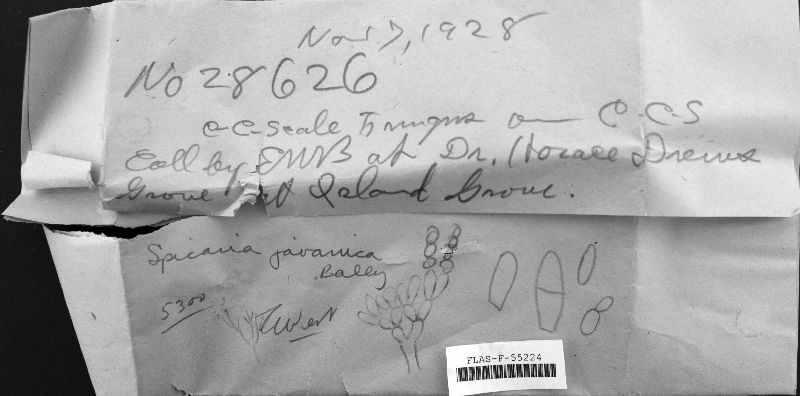 Nov 7, 1928
No 28626
c-c-scale Fungus on C-C-S
Coll by EWB at Dr. Horace Drew's
Grove at Island Grove.
Spicaria javanica
Bally
5300
West
FLAS-F-55224